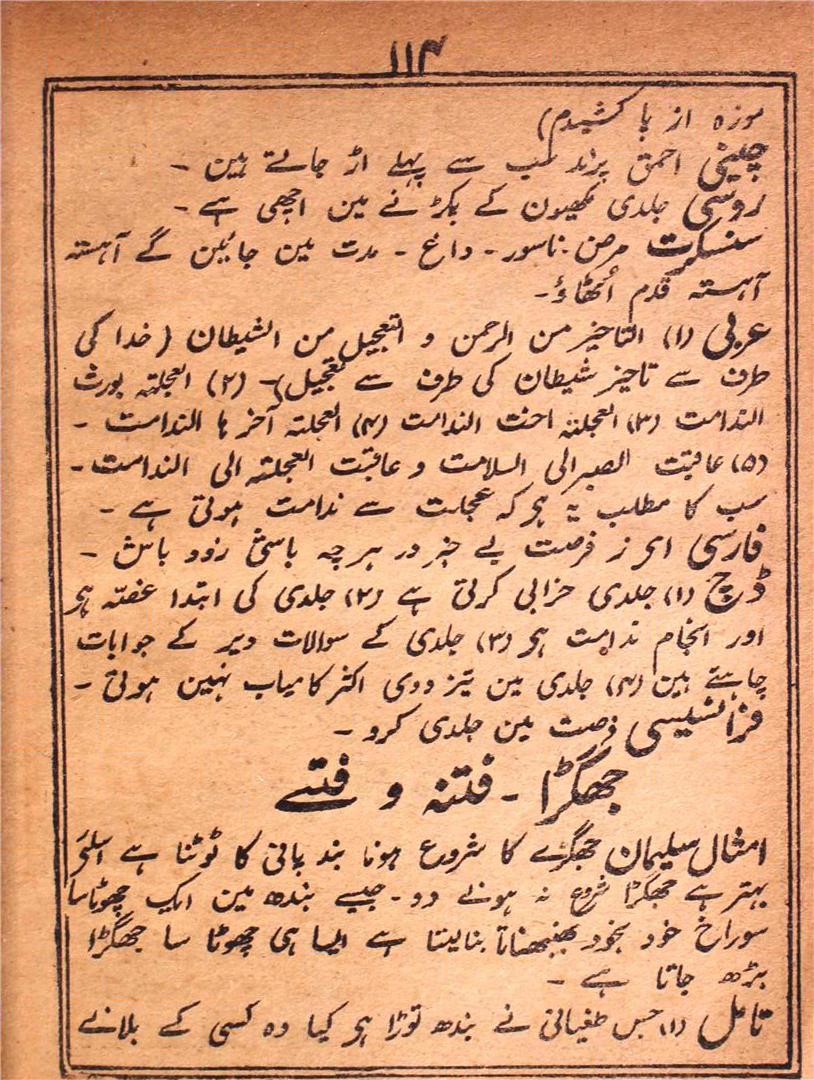 ۱۱۴
موزہ از پا کشیدم)
چینی احمق پرند سب سے پہلے اڑ جاتے ہین ۔
روسی جلدی مکھیون کے پکڑنے مین اچھی ہے ۔
سنسکرت مرض ۔ ناسور ۔ داغ ۔ مدت مین جائین گے آہستہ
آہستہ قدم اُٹھاؤ ۔
عربی (۱) التاخیر من الرحمن و التعجیل من الشیطان (خدا کی
طرف سے تاخیر شیطان کی طرف سے تعجیل) ۔ (۲) العجلتہ یورث
الندامت (۳) العجلتہ اخت الندامت (۴) العجلتہ آخرہا الندامت ۔
(۵) عاقبت الصبر الی السلامت و عاقبت العجلتہ الی الندامت ۔
سب کا مطلب یہ ہو کہ عجلت سے ندامت ہوتی ہے ۔
فارسی ای ز فرصت بے خبر در ہر چہ باشی زود باش ۔
ڈچ (۱) جلدی خرابی کرتی ہے (۲) جلدی کی ابتدا غصہ ہو
اور انجام ندامت ہو (۳) جلدی کے سوالات دیر کے جوابات
چاہتے ہین (۴) جلدی مین تیز روی اکثر کامیاب نہین ہوتی ۔
فرانسیسی فرصت مین جلدی کرو ۔
جھگڑا ۔ فتنہ و فتنے
امثال سلیمان جھگڑے کا شروع ہونا بند پانی کا ٹوٹنا ہے اسلئے
بہتر ہے جھگڑا شروع نہ ہونے دو ۔ جیسے بندھ مین ایک چھوٹا سا
سوراخ خود بخود بنالیتا ہے ایسا ہی چھوٹا سا جھگڑا
بڑھ جاتا ہے ۔
تامل (۱) جس طغیانی نے بندھ توڑا ہو کیا وہ کسی کے بلانے